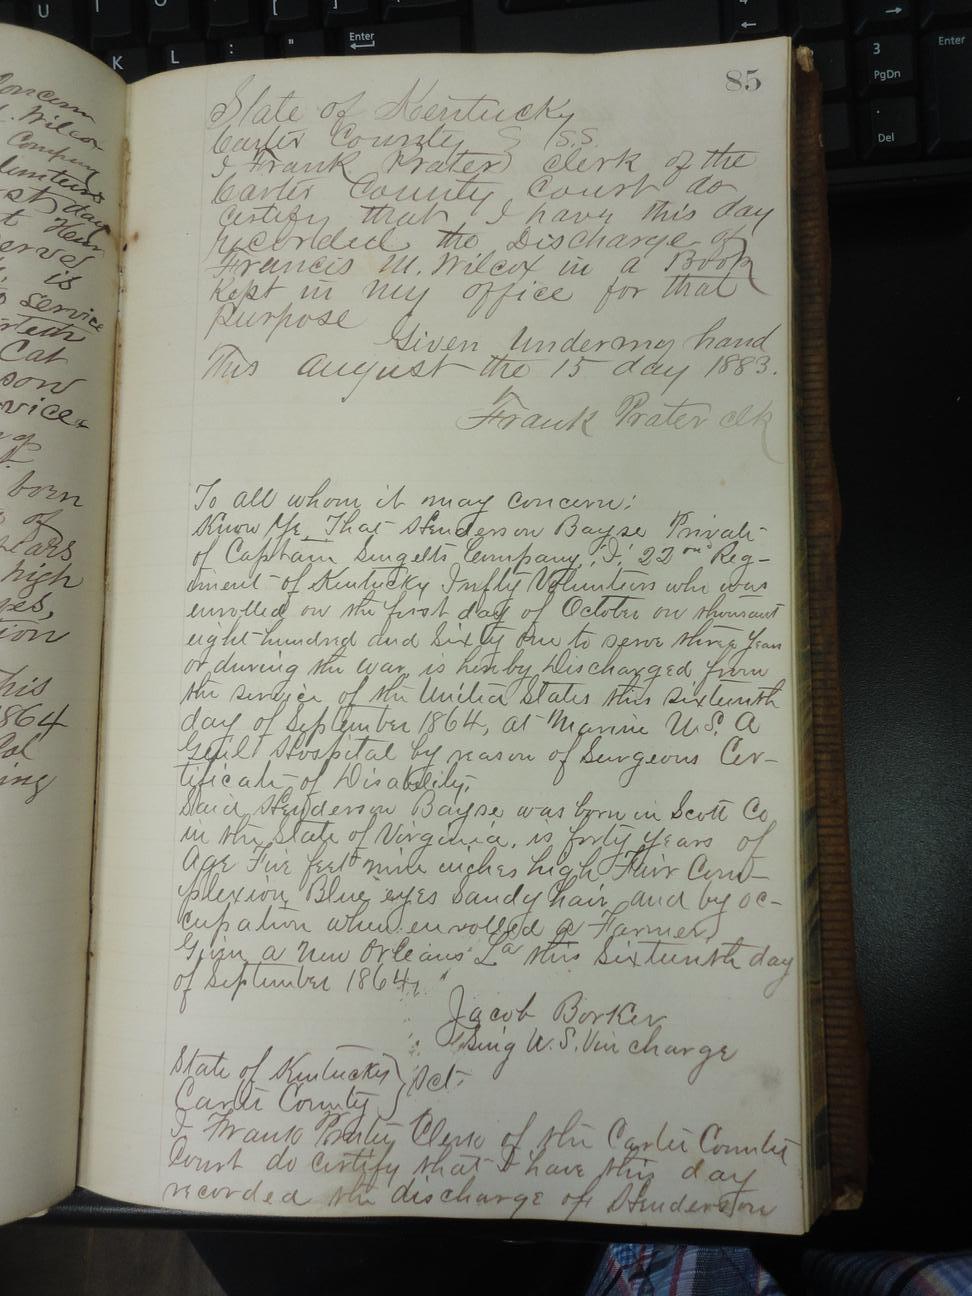 85
State of Kentucky
Carter County SS
I Frank Prater clerk of the
Carter County Court do
certify that I have this day
recorded the Discharge of
Francis M. Wilcox in a Book
Kept in my office for that
Purpose
Given Under my hand
This August the 15 day 1883.
Frank Prater clk
To all whom it may concern:
Know Ye That Henderson Bayse Private
of Captain Company "I," 22nd Reg-
iment of Kentucky Infty Volunteers who was
enrolled on the first day of October on thousant
eight hundred and Sixty one to serve three years
or during the war, is hereby Discharged from
the service of the United States this sixteenth
day of September 1864, at Marine U.S. A
Genl Hospital by reason of Surgeons Cer-
tificate of Disability,
Said Henderson Bayse was born in Scott Co
in the State of Virginia, is forty years of
Age Five feet nine inches high Fair Com-
plexion, Blue eyes Sandy hair, and by oc-
cupation when enrolled a Farmer,
Given a New Orleans La this Sixteenth day
of September 1864,
Jacob Borker
Surg U.S.V in charge
State of Kentucky
Carter County Sct.
I Frank Prater Clerk of the Carter County
Court do certify that I have this day
recorded the discharge of Henderson
concern
Wilcox
Company
lunteers
st day
t Henr
erved
is
to service
rteen
Cat
son
rvice
of
born
of
years
high
yes,
tion
This
1864
Col
ing
U
I
O
K
L
:
;
"
'
Enter
4
3
PgDn
Enter
.
Del